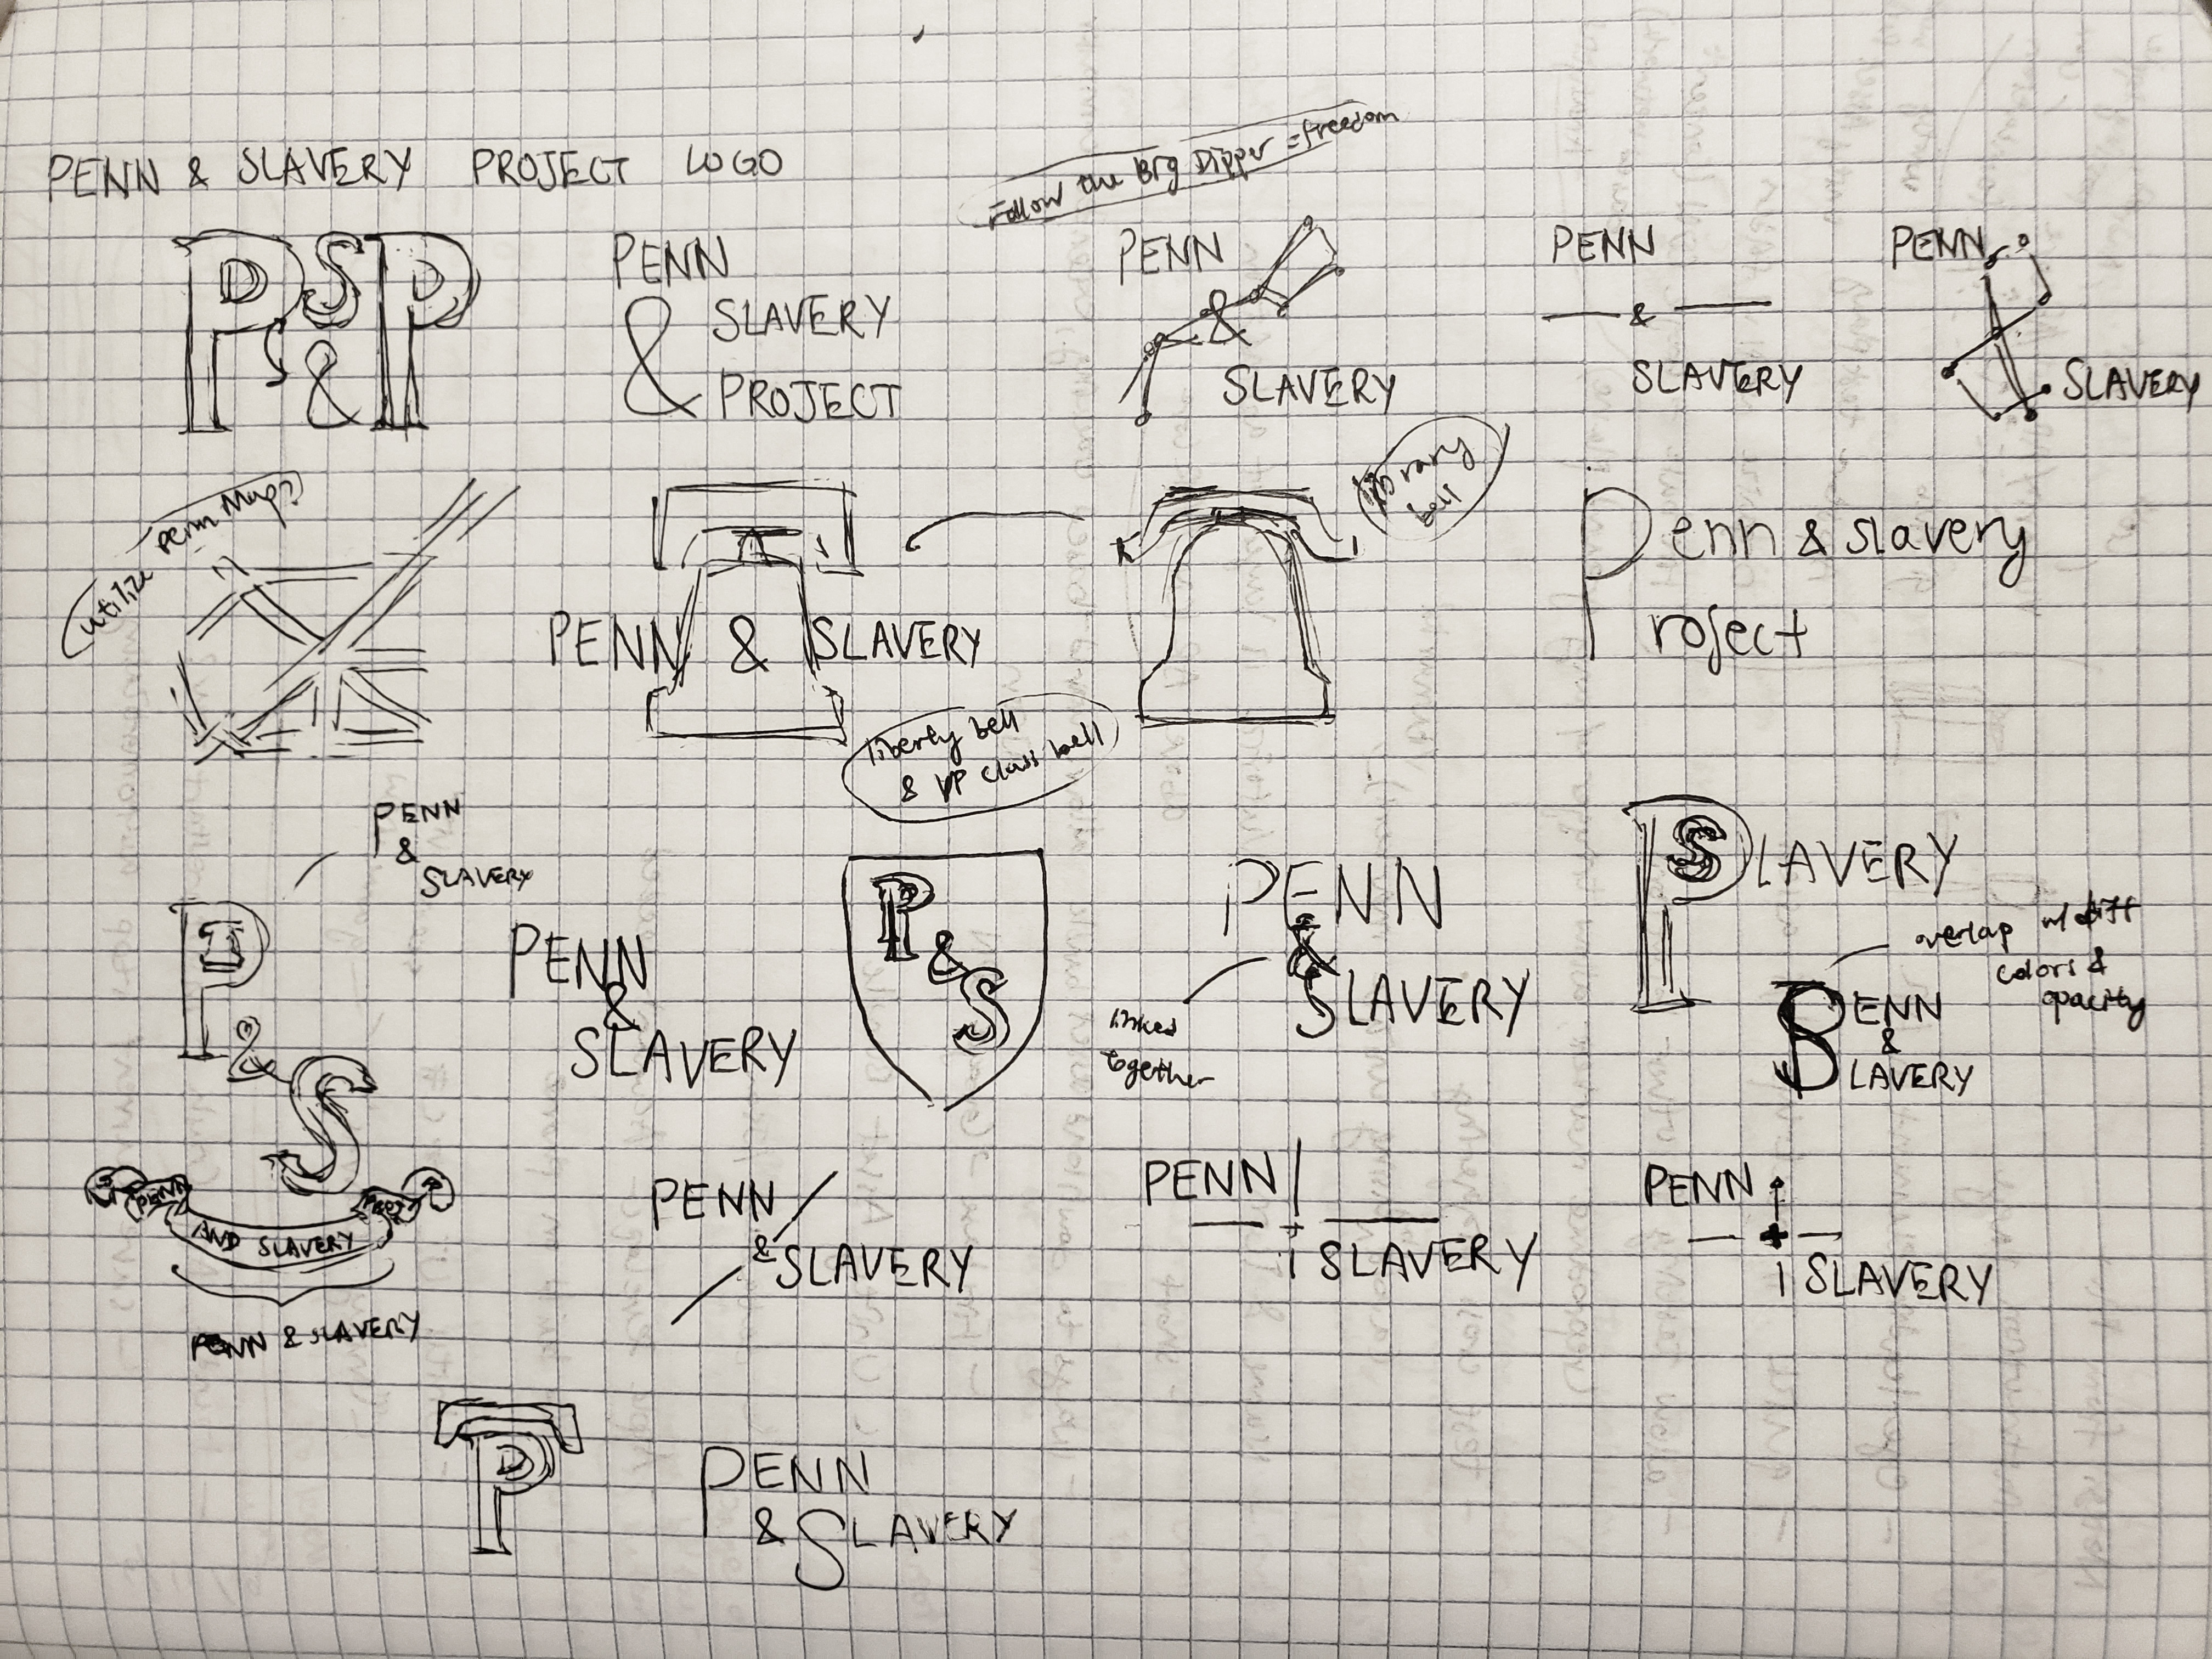 PENN & SLAVERY PROJECT LOGO
Follow the Big Dipper = freedom
PSP
&
PENN
& SLAVERY
PROJECT
PENN
&
SLAVERY
PENN
&
SLAVERY
PENN
SLAVERY
utilize Penn Map?
PENN & SLAVERY
liberty bell
&
class bell
bell
Penn & slavery
Project
PENN
&
SLAVERY
P
&
S
PENN
&
SLAVERY
P
&
S
PENN
&
SLAVERY
linked
together
P
SLAVERY
overlap w/ diff
colors &
opacity
ENN
&
LAVERY
PENN
AND SLAVERY
PENN & SLAVERY
PENN
& SLAVERY
PENN
+
SLAVERY
PENN
+
SLAVERY
P
PENN
& SLAVERY